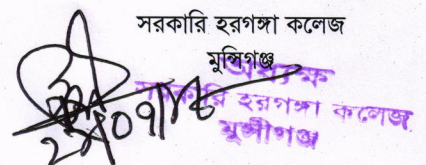 সরকারি হরগঙ্গা কলেজ
মুন্সিগঞ্জ
অধ্যক্ষ
সরকারি হরগঙ্গা কলেজ
মুন্সীগঞ্জ